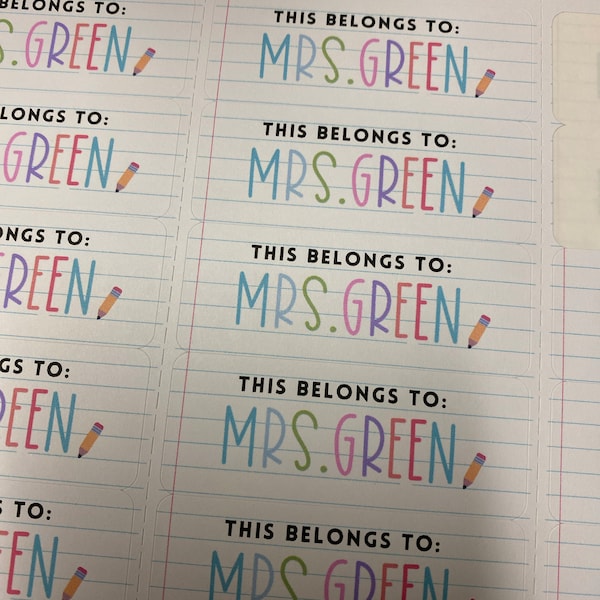 BELONGS TO:
S.GREEN
THIS BELONGS TO:
MRS.GREEN
LONGS TO:
GREEN
THIS BELONGS TO:
MRS.GREEN
ONGS TO:
REEN
THIS BELONGS TO:
MRS.GREEN
GS TO:
EEN
THIS BELONGS TO:
MRS.GREEN
S TO:
EEN
THIS BELONGS TO:
MRS.GREEN